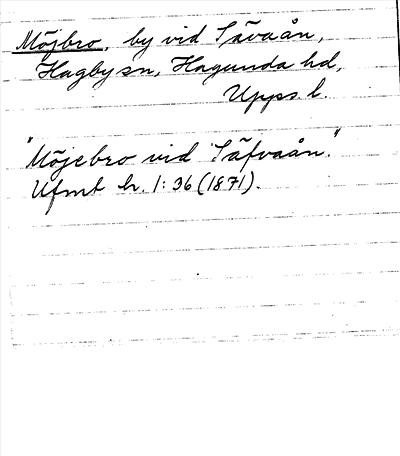 Möjbro, by vid Sävaån,
Hagby sn, Hagunda hd,
Upps. l.
"Möjebro vid Säfvaån."
Ufmt h. 1:36 (1871).